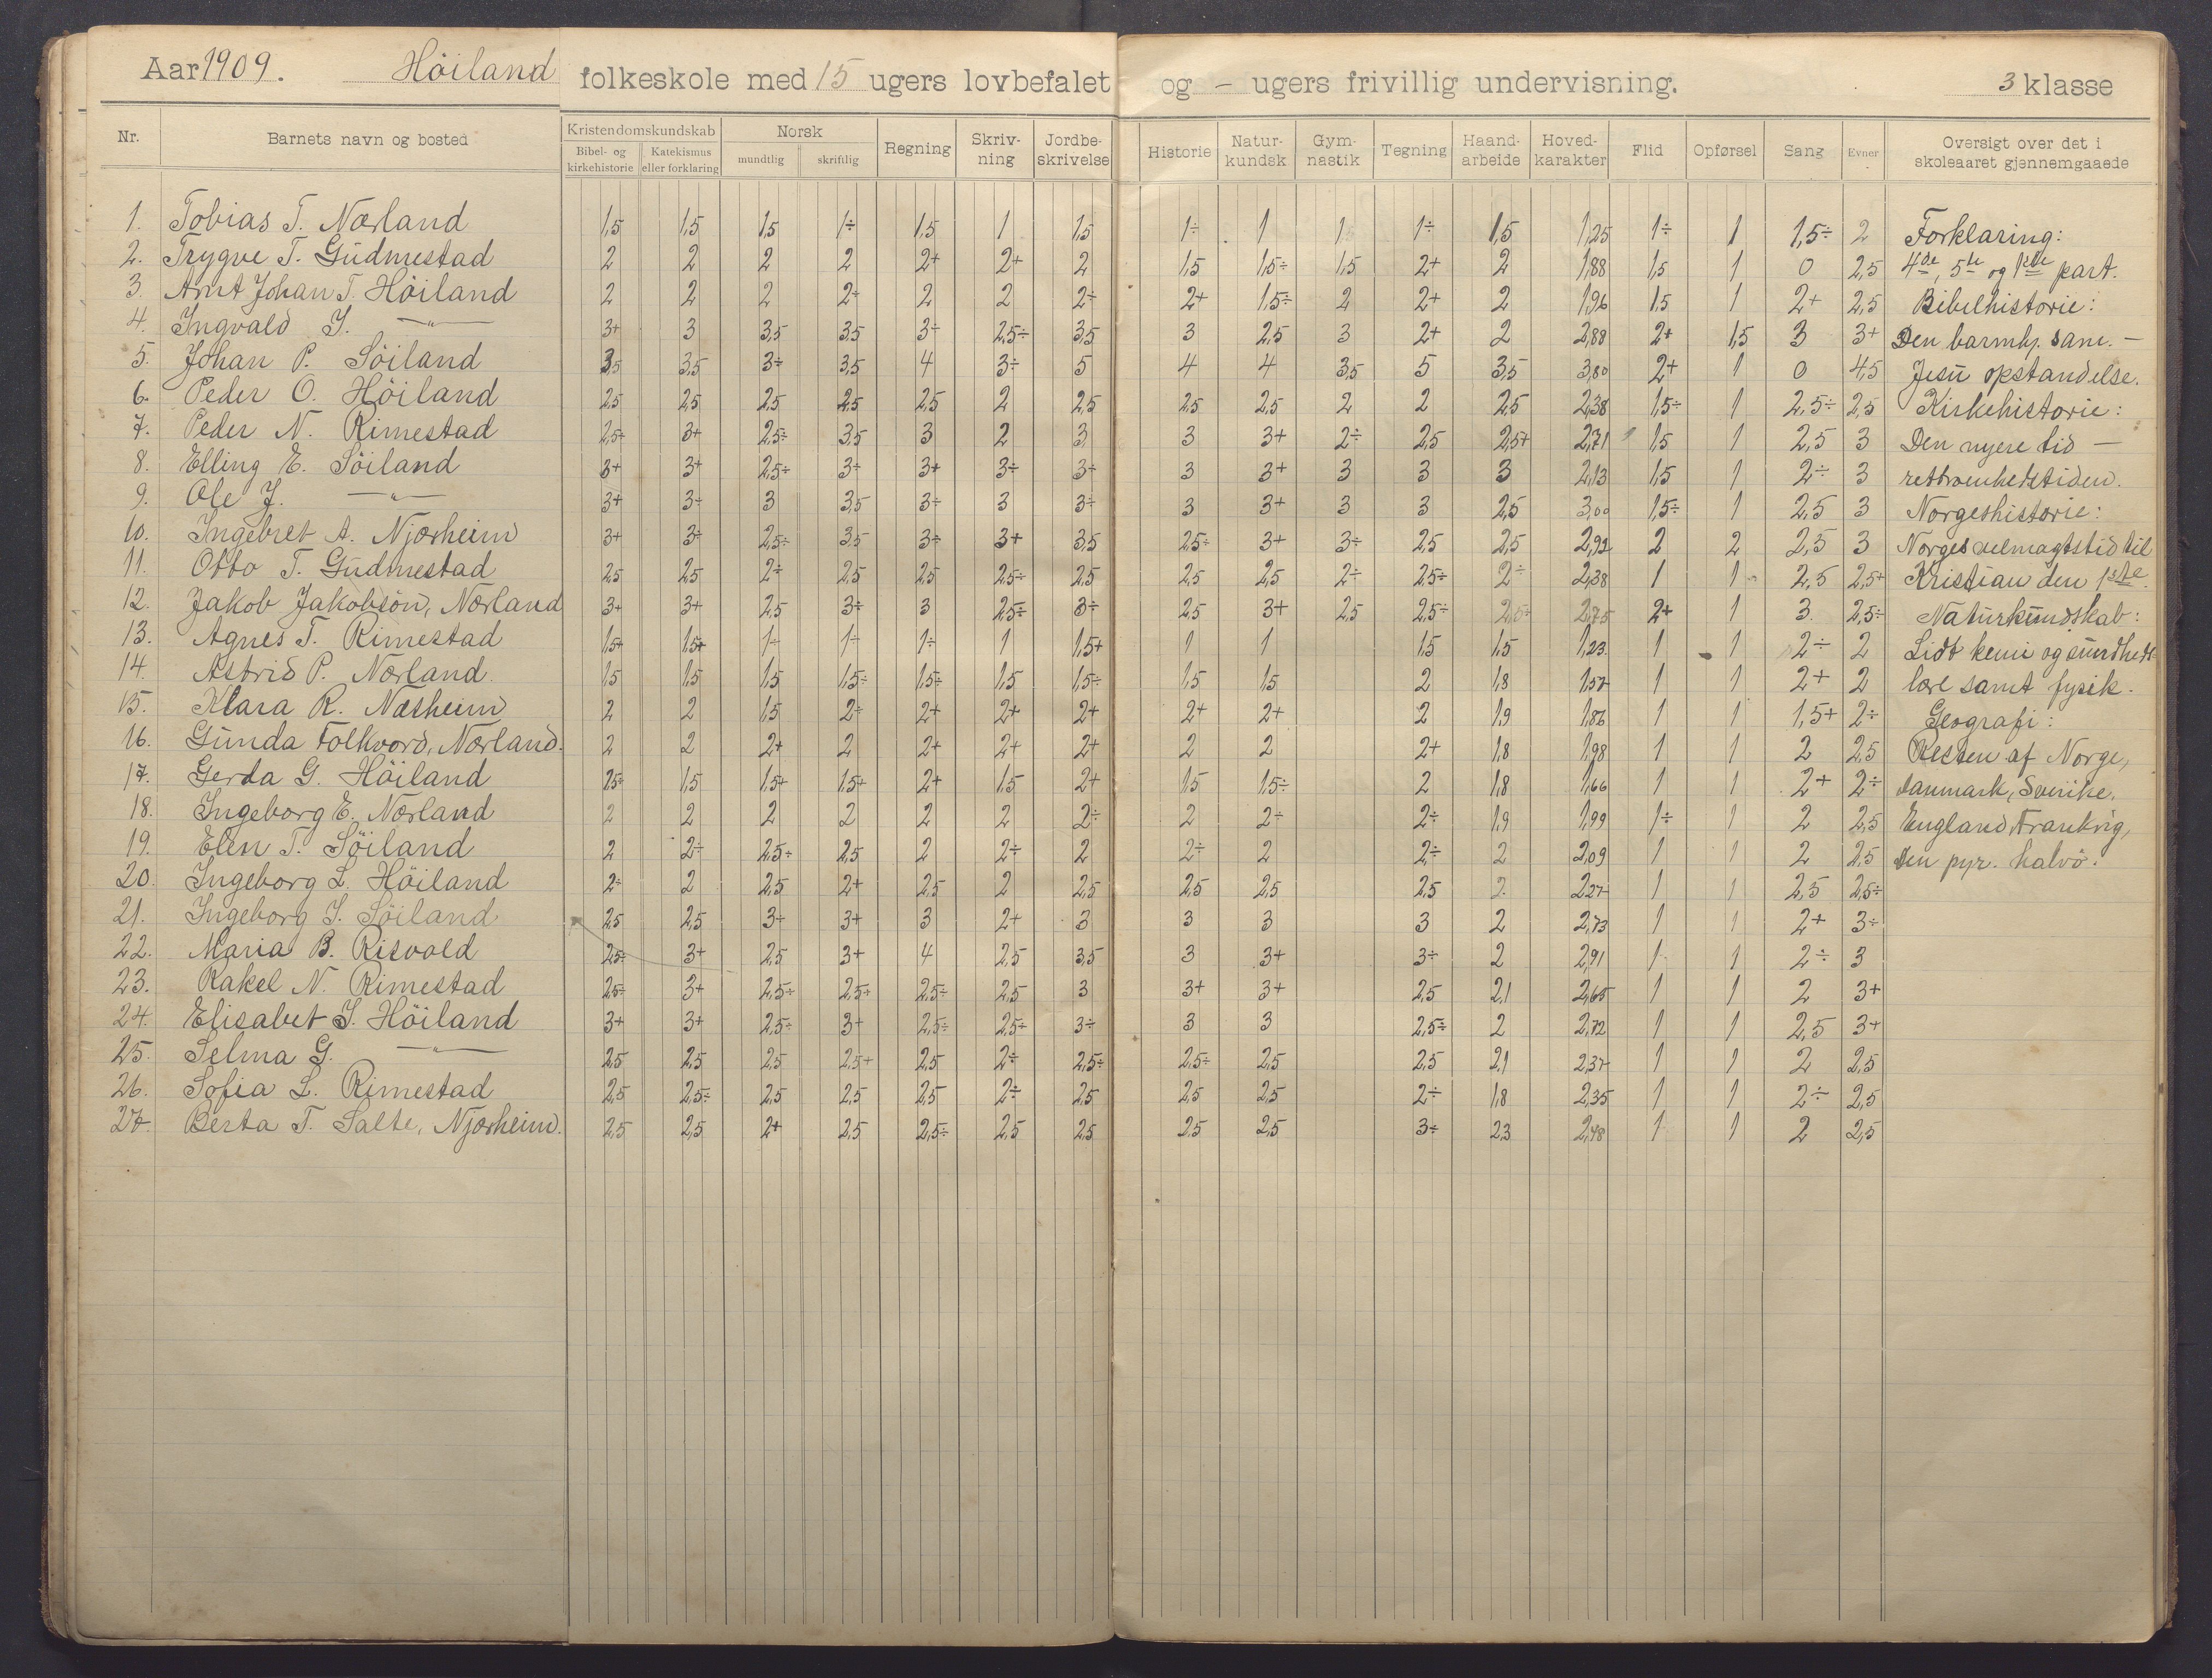 Aar 1909. Höiland folkeskole med 15 ugers lovbefalet og – ugers frivillig undervisning. 3 klasse
Nr. Barnets navn og bosted Kristendomskundskab Bibel- og kirkehistorie Katekismus eller forklaring Norsk mundtlig skriftlig Regning Skrivning Jordbeskrivelse Historie Naturkundsk Gymnastik Tegning Haandarbeide Hovedkarakter Flid Opførsel Sang Evner Oversigt over det i skoleaaret gjennemgaaede
1. Tobias T. Nærland 1,5 1,5 1,5 1÷ 1,5 1 1,5 1÷ 1 1 1÷ 1,5 1,25 1÷ 1 1,5÷ 2 Forklaring:
2. Trygve T. Gudmestad 2 2 2 2 2+ 2+ 2 1,5 1,5÷ 1,5 2+ 2 1,88 1,5 1 0 2,5 4de, 5te og 1ste part.
3. Arnt Johan T. Höiland 2 2 2 2÷ 2 2 2÷ 2+ 1,5÷ 2 2+ 2 1,96 1,5 1 2+ 2,5 Bibelhistorie:
4. Ingvald J. —„— 3+ 3 3,5 3,5 3÷ 2,5÷ 3,5 3 2,5 3 2+ 2 2,88 2+ 1,5 3 3+ Den barmhj. sam. —
5. Johan P. Söiland 3,5 3,5 3÷ 3,5 4 3÷ 5 4 4 3,5 5 3,5 3,80 2+ 1 0 4,5 Jesu opstandelse.
6. Peder O. Höiland 2,5 2,5 2,5 2,5 2,5 2 2,5 2,5 2,5 2 2 2,5 2,38 1,5÷ 1 2,5÷ 2,5 Kirkehistorie:
7. Peder N. Rimestad 2,5÷ 3+ 2,5÷ 3,5 3 2 3 3 3+ 2÷ 2,5 2,5+ 2,71 1,5 1 2,5 3 Den nyere tid —
8. Elling E. Söiland 3+ 3+ 2,5÷ 3÷ 3+ 3÷ 3÷ 3 3+ 3 3 3 2,13 1,5 1 2÷ 3 rettroenhetstiden.
9. Ole J. —„— 3+ 3÷ 3 3,5 3÷ 3 3÷ 3 3+ 3 3 2,5 3,00 1,5÷ 1 2,5 3 Norgeshistorie:
10. Ingebret A. Njærheim 3+ 3÷ 2,5÷ 3,5 3÷ 3+ 3,5 2,5÷ 3+ 3÷ 2,5 2,5 2,92 2 2 2,5 3 Norges velmagtstid til
11. Otto T. Gudmestad 2,5 2,5 2÷ 2,5 2,5 2,5÷ 2,5 2,5 2,5 2÷ 2,5÷ 2÷ 2,38 1 1 2,5 2,5+ Kristian den 1ste.
12. Jakob Jakobsön, Nærland 3+ 3+ 2,5 3÷ 3 2,5÷ 3÷ 2,5 3+ 2,5 2,5÷ 2,5÷ 2,75 2+ 1 3 2,5÷ Naturkundskab:
13. Agnes T. Rimestad 1,5+ 1,5+ 1÷ 1÷ 1÷ 1 1,5+ 1 1 1,5 1,5 1,23 1 1 2÷ 2 Lidt kemi og sundheds
14. Astrid P. Nærland. 1,5 1,5 1,5 1,5÷ 1,5÷ 1,5 1,5÷ 1,5 1,5 2 1,8 1,57 1 1 2+ 2 lære samt fysik.
15. Klara R. Næsheim 2 2 1,5 2÷ 2+ 2+ 2+ 2+ 2+ 2 1,9 1,86 1 1 1,5+ 2÷ Geografi:
16. Gunda Folkvord, Nærland. 2 2 2+ 2 2+ 2+ 2+ 2 2 2+ 1,8 1,98 1 1 2 2,5 Resten af Norge,
17. Gerda G. Höiland 1,5÷ 1,5 1,5+ 1,5+ 2+ 1,5 2+ 1,5 1,5÷ 2 1,8 1,66 1 1 2+ 2÷ Danmark, Sverike,
18. Ingeborg E. Nærland 2 2 2 2 2 2 2÷ 2 2÷ 2÷ 1,9 1,99 1÷ 1 2 2,5 England, Frankrig,
19. Elen T. Söiland 2 2÷ 2,5÷ 2,5 2 2÷ 2 2÷ 2 2÷ 2 2,09 1 1 2 2,5 Den pyr. halvö.
20. Ingeborg L. Höiland 2÷ 2 2,5 2+ 2,5 2 2,5 2,5 2,5 2,5 2 2,27 1 1 2,5 2,5÷
21. Ingeborg J. Söiland 2,5 2,5 3÷ 3+ 3 2+ 3 3 3 3 2 2,73 1 1 2+ 3÷
22. Maria B. Risvold 2,5÷ 3+ 2,5 3+ 4 2,5 3,5 3 3+ 3÷ 2 2,91 1 1 2÷ 3
23. Rakel N. Rimestad 2,5÷ 3+ 2,5÷ 2,5÷ 2,5÷ 2,5 3 3+ 3+ 2,5 2,1 2,65 1 1 2 3+
24. Elisabet J. Höiland 3+ 3+ 2,5÷ 3+ 2,5÷ 2,5÷ 3÷ 3 3 2,5÷ 2 2,72 1 1 2,5 3+
25. Selma G. —„— 2,5 2,5 2,5 2,5+ 2,5 2÷ 2,5÷ 2,5÷ 2,5 2,5 2,1 2,37 1 1 2 2,5
26. Sofia L. Rimestad 2,5 2,5÷ 2,5 2,5 2,5 2÷ 2,5 2,5 2,5 2÷ 1,8 2,35 1 1 2÷ 2,5
27. Berta T. Salte, Njærheim. 2,5 2,5 2+ 2,5 2,5÷ 2,5 2,5 2,5 2,5 3÷ 2,3 2,48 1 1 2 2,5